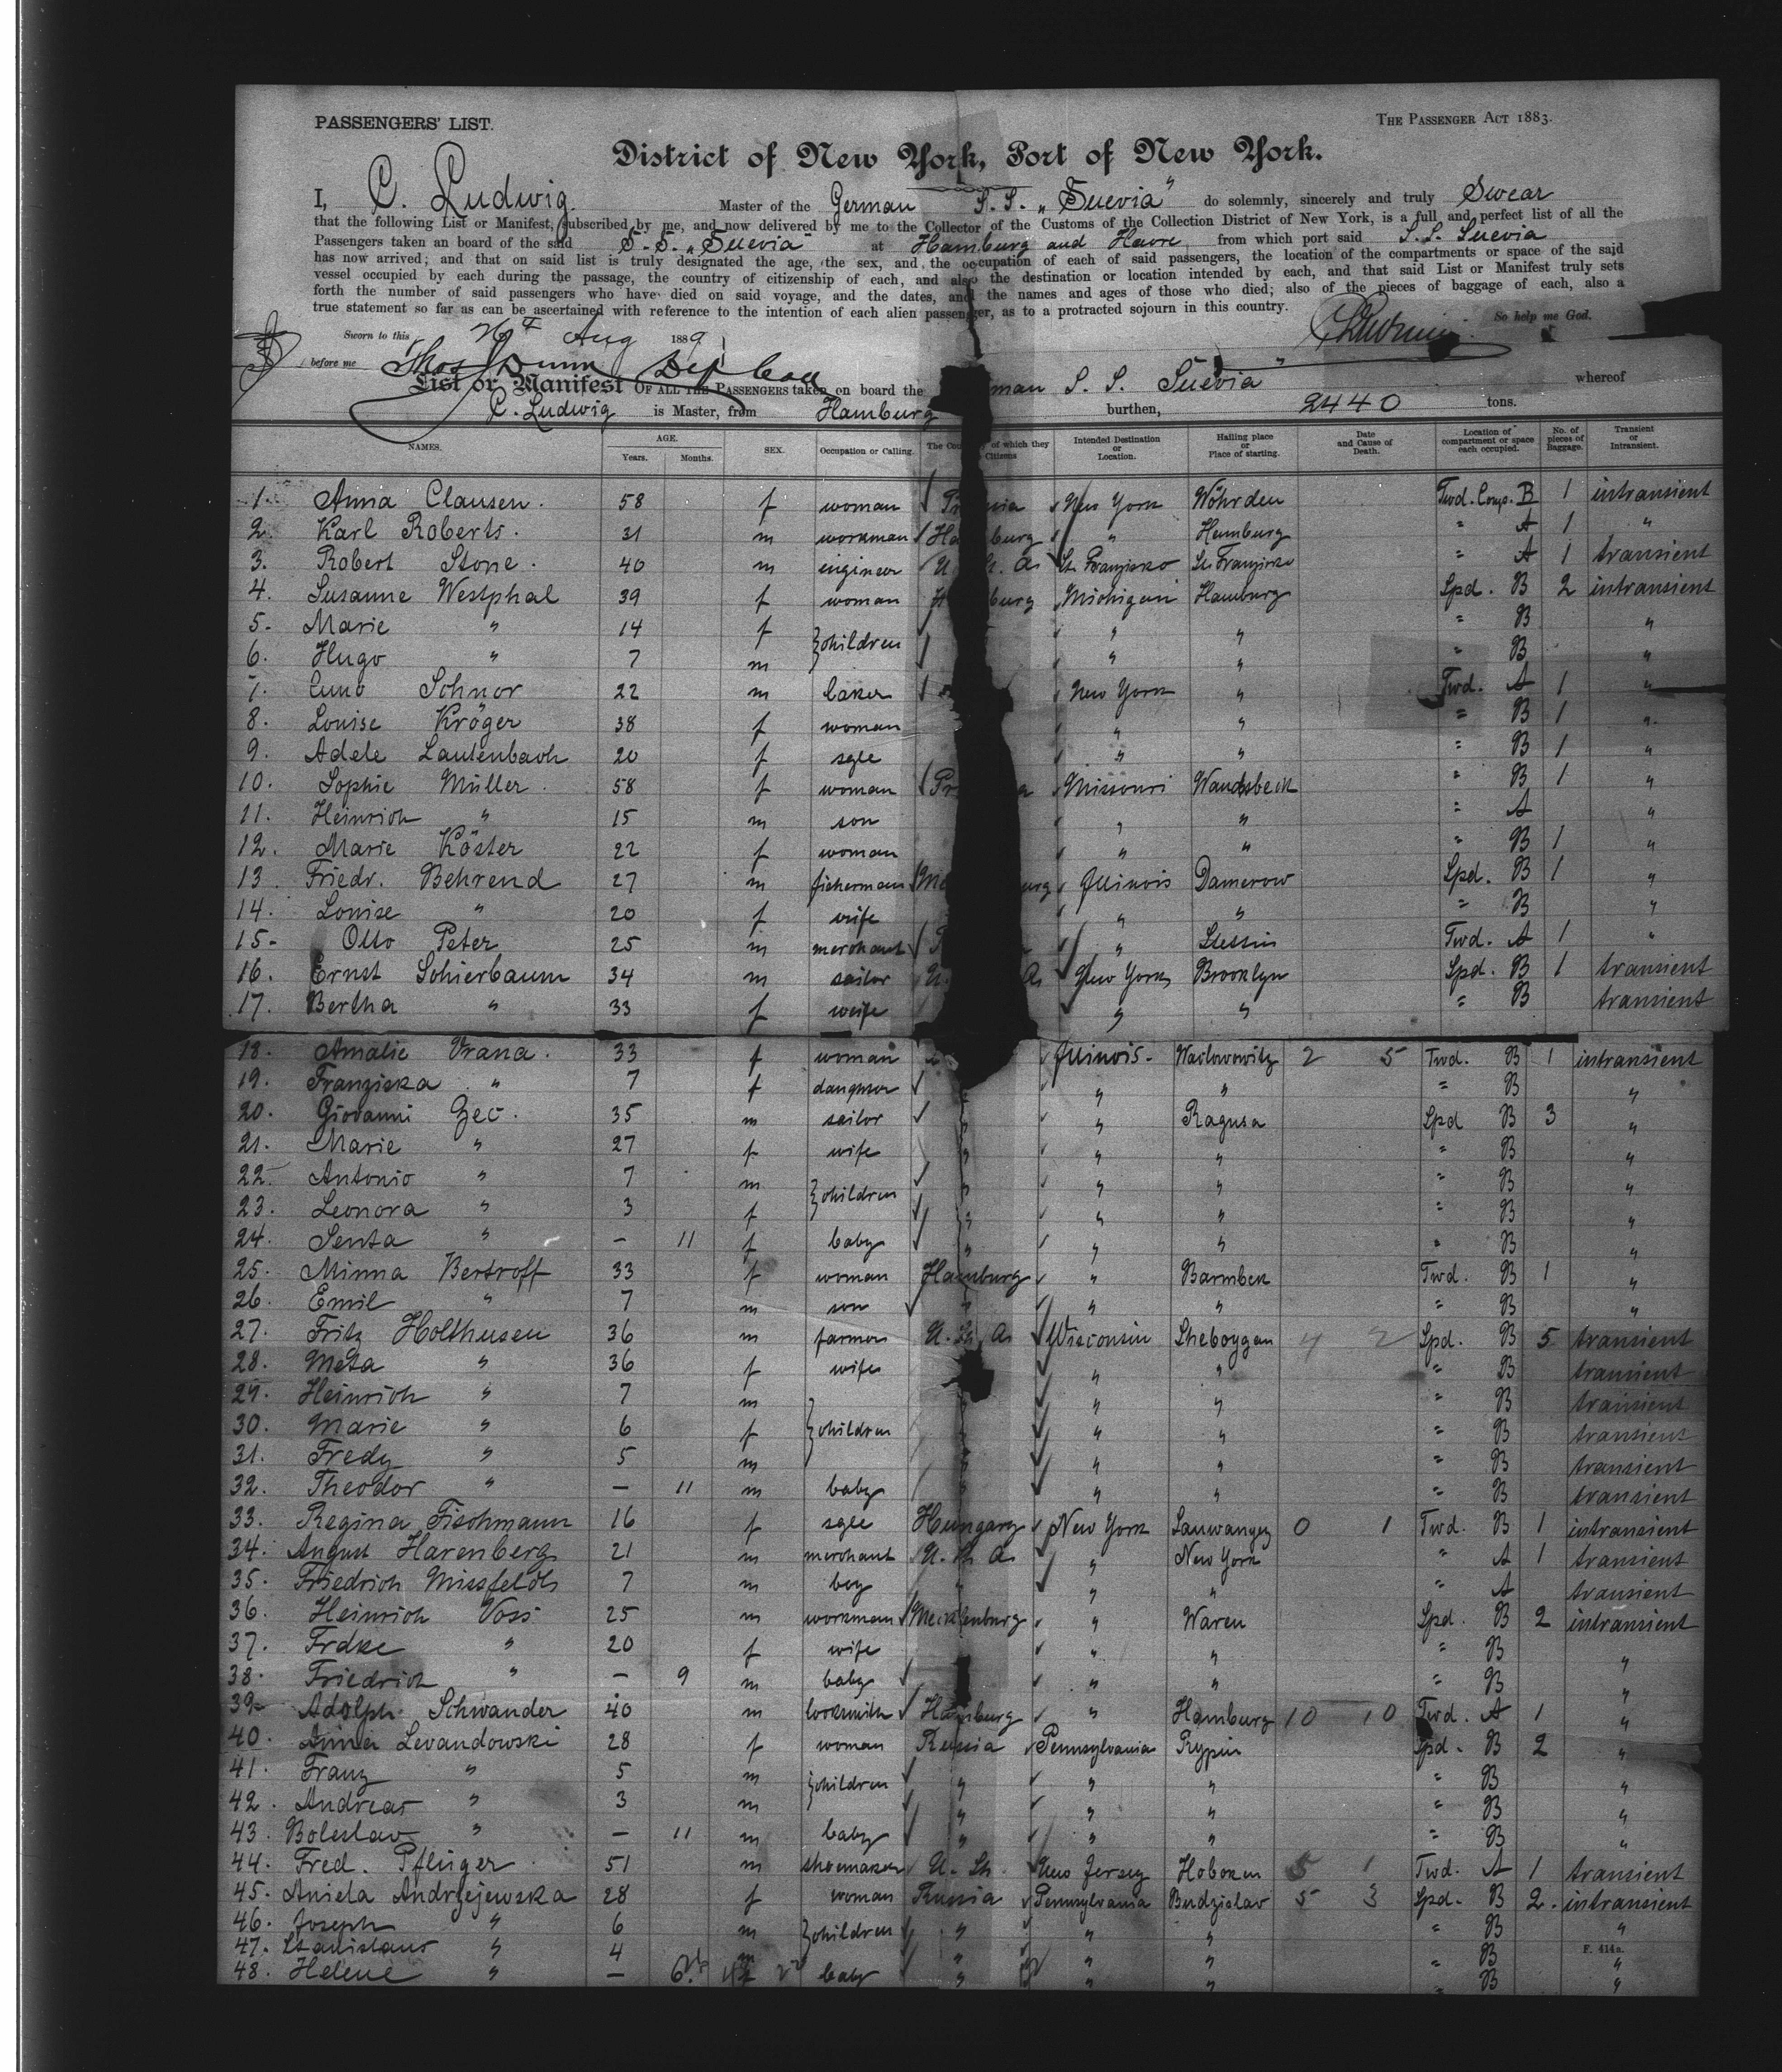 PASSENGERS' LIST.
THE PASSENGER ACT 1883.
District of New York, Port of New York.
I, C. Ludwig. Master of the German S. S. „Suevia" do solemnly, sincerely and truly Swear
that the following List or Manifest, subscribed by me, and now delivered by me to the Collector of the Customs of the Collection District of New York, is a full and perfect list of all the
Passengers taken an board of the said S. S. „Suevia" at Hamburg and Havre from which port said S. S. Suevia
has now arrived; and that on said list is truly designated the age, the sex, and the occupation of each of said passengers, the location of the compartments or space of the said
vessel occupied by each during the passage, the country of citizenship of each, and also the destination or location intended by each, and that said List or Manifest truly sets
forth the number of said passengers who have died on said voyage, and the dates, and the names and ages of those who died; also of the pieces of baggage of each, also a
true statement so far as can be ascertained with reference to the intention of each alien passenger, as to a protracted sojourn in this country.
So help me God.
Sworn to this 26th Aug 1889
before me Thos Dunn Dep Coll
List or Manifest OF ALL THE PASSENGERS taken on board the man S. S. Suevia" whereof
C. Ludwig is Master, from Hamburg burthen, 2440 tons.
NAMES. AGE. Years. Months. SEX. Occupation or Calling. The Cou of which they Citizens Intended Destination or Location. Hailing place or Place of starting. Date and Cause of Death. Location of compartment or space each occupied. No. of pieces of Baggage. Transient or Intransient.
1. Anna Clausen. 58 f woman New York Wöhrden Twd. Comp. B 1 intransient
2. Karl Roberts. 31 m workman Ha burg " Hamburg " A 1 "
3. Robert Stone. 40 m engineer U. St. A. St. Franzisko St. Franzisko " A 1 transient
4. Susanne Westphal 39 f woman H burg Michigan Hamburg Spd. B 2 intransient
5. Marie " 14 f } children " " " B "
6. Hugo " 7 m " " " B "
7. Cuno Schnor 22 m baker New York " Twd. A 1 "
8. Louise Kröger 38 f woman " " " B 1 "
9. Adele Lautenbach 20 f sgle " " " B 1 "
10. Sophie Müller 58 f woman Pr a Missouri Wandsbeck " B 1 "
11. Heinrich " 15 m son " " " A "
12. Marie Köster 22 f woman " " " B 1 "
13. Friedr. Behrend 27 m fisherman Me urg Illinois Damerow Spd. B 1 "
14. Louise " 20 f wife " " " B "
15. Otto Peter 25 m merchant " Stettin Twd. A 1 "
16. Ernst Schierbaum 34 m sailor U. A. New York Brooklyn Spd. B 1 transient
17. Bertha " 33 f wife " " " B transient
18. Amalie Vrana. 33 f woman Illinois. 2 5 Twd. B 1 intransient
19. Franziska " 7 f daughter " " " B "
20. Giovanni Zec. 35 m sailor " Ragusa Spd B 3 "
21. Marie " 27 f wife " " " " B "
22. Antonio " 7 m } children " " " " B "
23. Leonora " 3 f " " " " B "
24. Senta " – 11 f baby " " " " B "
25. Minna Bertroff 33 f woman Hamburg " Barmbek Twd. B 1 "
26. Emil " 7 m son " " " " B "
27. Fritz Holthusen 36 m farmer U. St. A. Wisconsin Sheboygan 4 2 Spd. B 5 transient
28. Meta " 36 f wife " " " B transient
29. Heinrich " 7 m } children " " " B transient
30. Marie " 6 f " " " B transient
31. Fredy " 5 m " " " B transient
32. Theodor " – 11 m baby " " " " B transient
33. Regina Fischmann 16 f sgle Hungary New York 0 1 Twd. B 1 intransient
34. August Harenberg 21 m merchant U. St. A. " New York " A 1 transient
35. Friedrich Missfeldt 7 m boy " " " " A transient
36. Heinrich Voss 25 m workman Mecklenburg " Waren Spd. B 2 intransient
37. Frdke " 20 f wife " " " B "
38. Friedrich " – 9 m baby " " " B "
39. Adolph Schwander 40 m locksmith Hamburg " Hamburg 10 10 Twd. A 1 "
40. Anna Levandowski 28 f woman Russia Pennsylvania Rypin Spd. B 2 "
41. Franz " 5 m } children " " " " B "
42. Andreas " 3 m " " " " B "
43. Boleslav " – 11 m baby " " " " B "
44. Fred. Pflüger 51 m shoemaker U. St. New Jersey Hoboken 5 1 Twd. A 1 transient
45. Aniela Andrzejewska 28 f woman Russia Pennsylvania Budzislav 5 3 Spd. B 2. intransient
46. Joseph " 6 m } children " " " " B "
47. Stanislaus " 4 m " " " " B "
F. 414a.
48. Helene " – 6 baby " " " " B "